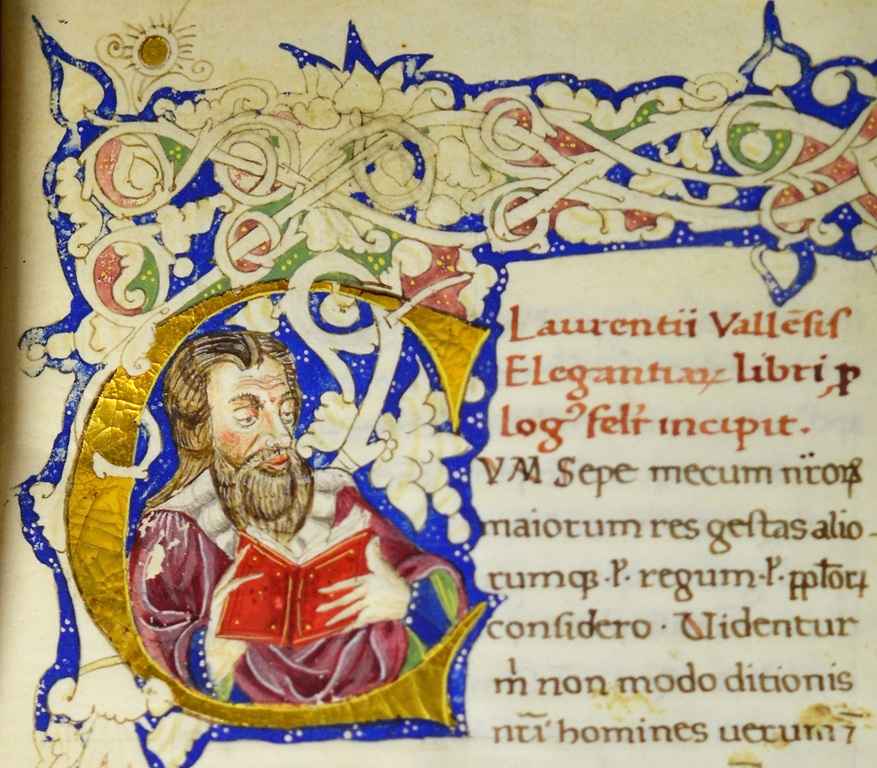 Laurentii Vallẽsis
Elegantiaꝝ libri ꝓ
logꝰ felr̃ incipit.
CVM Sepe mecum nr̃oꝝ
maiorum res gestas alio
rumqꝫ ·l̉· regum ·l̉· pplõꝝ
considero · Videntur
m̉ non modo ditionis
nr̃i homines uerum ⁊